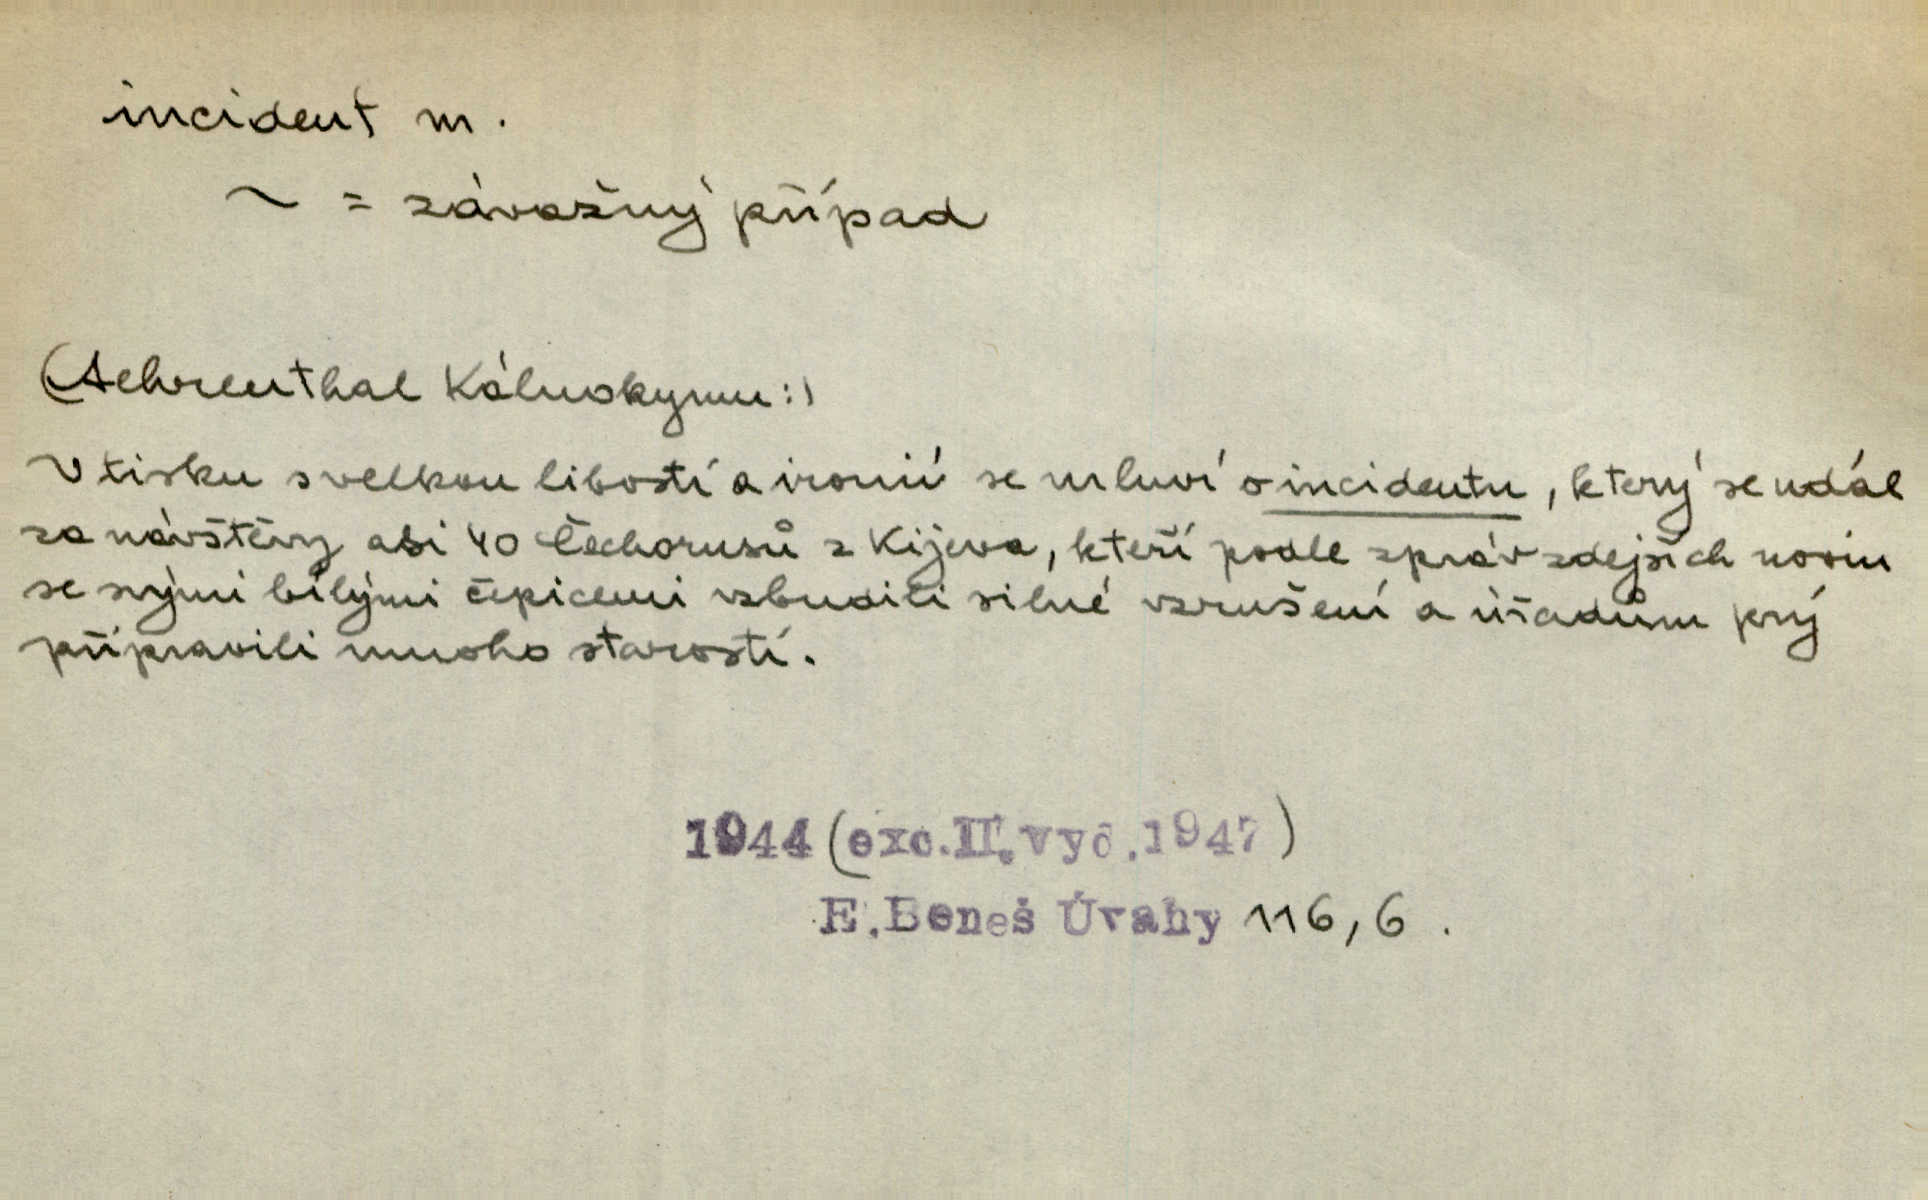 incident m.
~ = závažný případ
(Aehrenthal Kálnokymu:)
V tisku s velkou libostí a ironií se mluví o incidentu, který se udál
za návštěvy asi 40 Čechorusů z Kijeva, kteří podle zpráv zdejších novin
se svými bílými čepicemi vzbudili silné vzrušení a úřadům prý
připravili mnoho starostí.
1944 (exc. II. vyd. 1947)
E. Beneš Úvahy 116, 6.